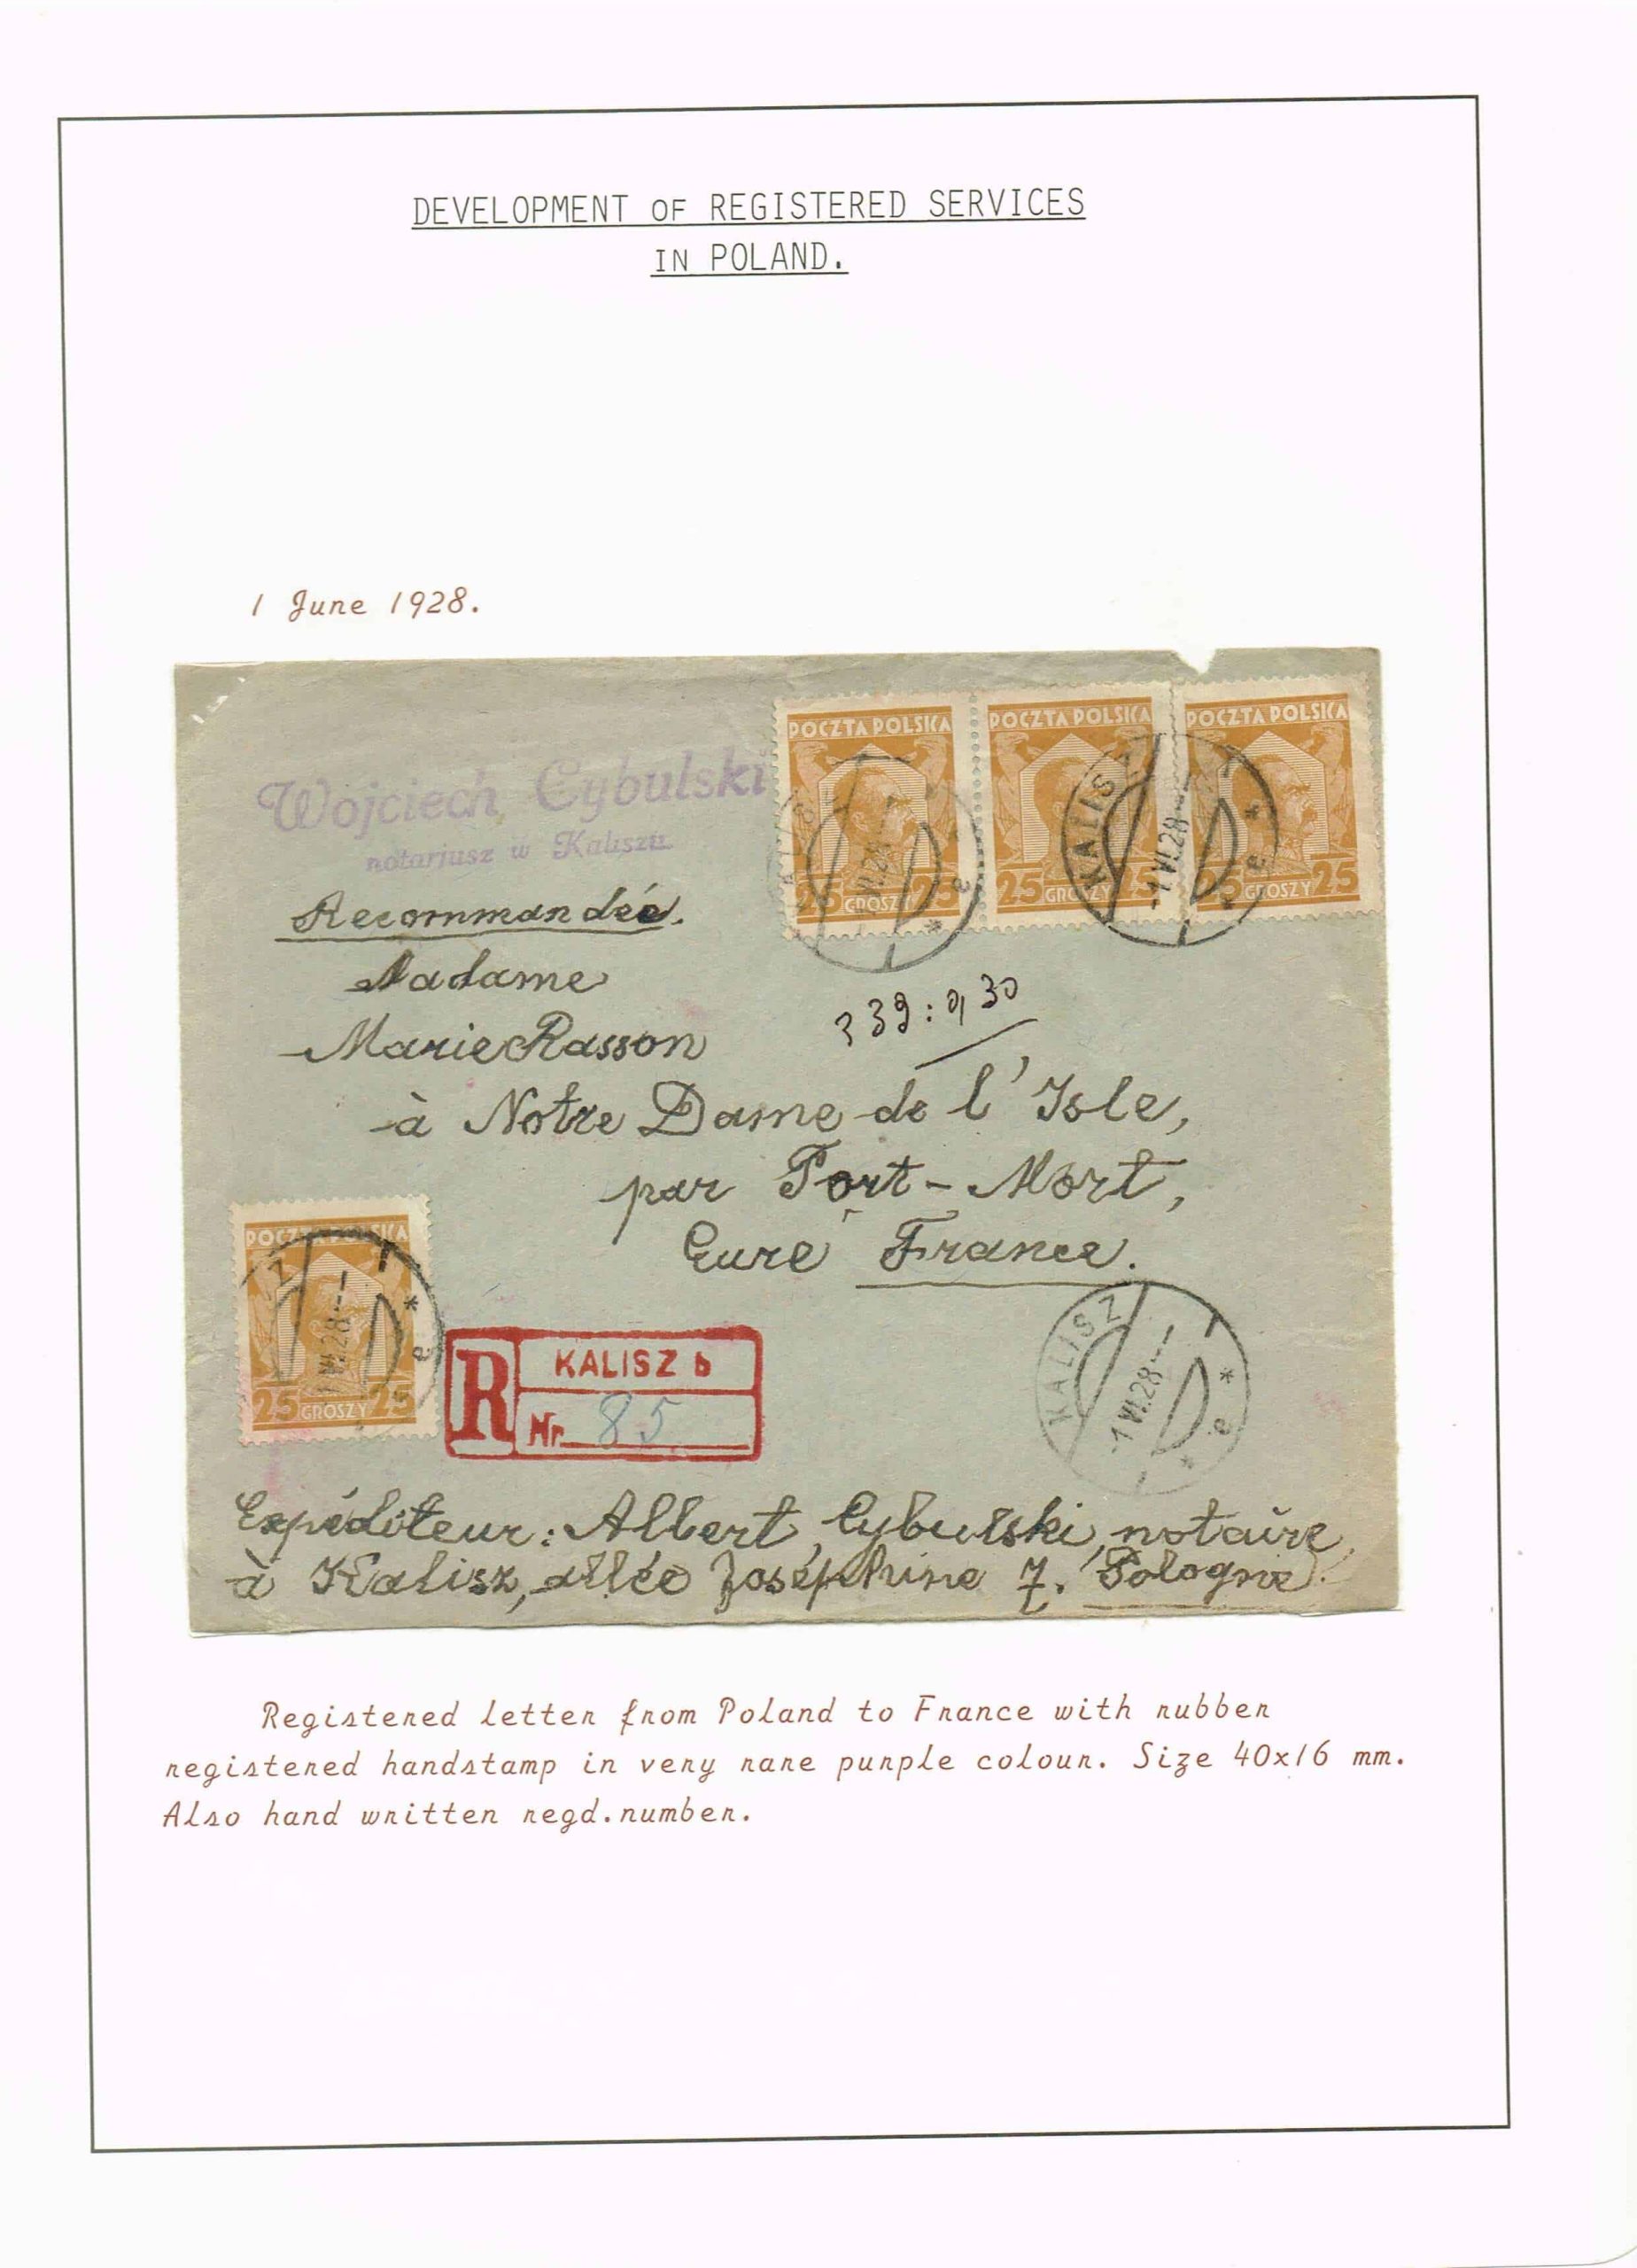 DEVELOPMENT OF REGISTERED SERVICES
IN POLAND.
1 June 1928.
POCZTA POLSKA
25 GROSZY 25
POCZTA POLSKA
25 GROSZY 25
POCZTA POLSKA
25 GROSZY 25
KALISZ
-1 VI.28
* e *
Wojciech Cybulski
notariusz w Kaliszu
Recommandée.
Madame
Marie Rasson
339:0,30
à Notre Dame de l'Isle,
par Port-Mort,
Eure France.
POCZTA POLSKA
25 GROSZY 25
R
KALISZ b
Nr. 85
KALISZ
-1 VI.28
* e *
Expéditeur: Albert Cybulski, notaire
à Kalisz, allée Joséphine 7. Pologne.
Registered letter from Poland to France with rubber
registered handstamp in very rare purple colour. Size 40x16 mm.
Also hand written regd.number.